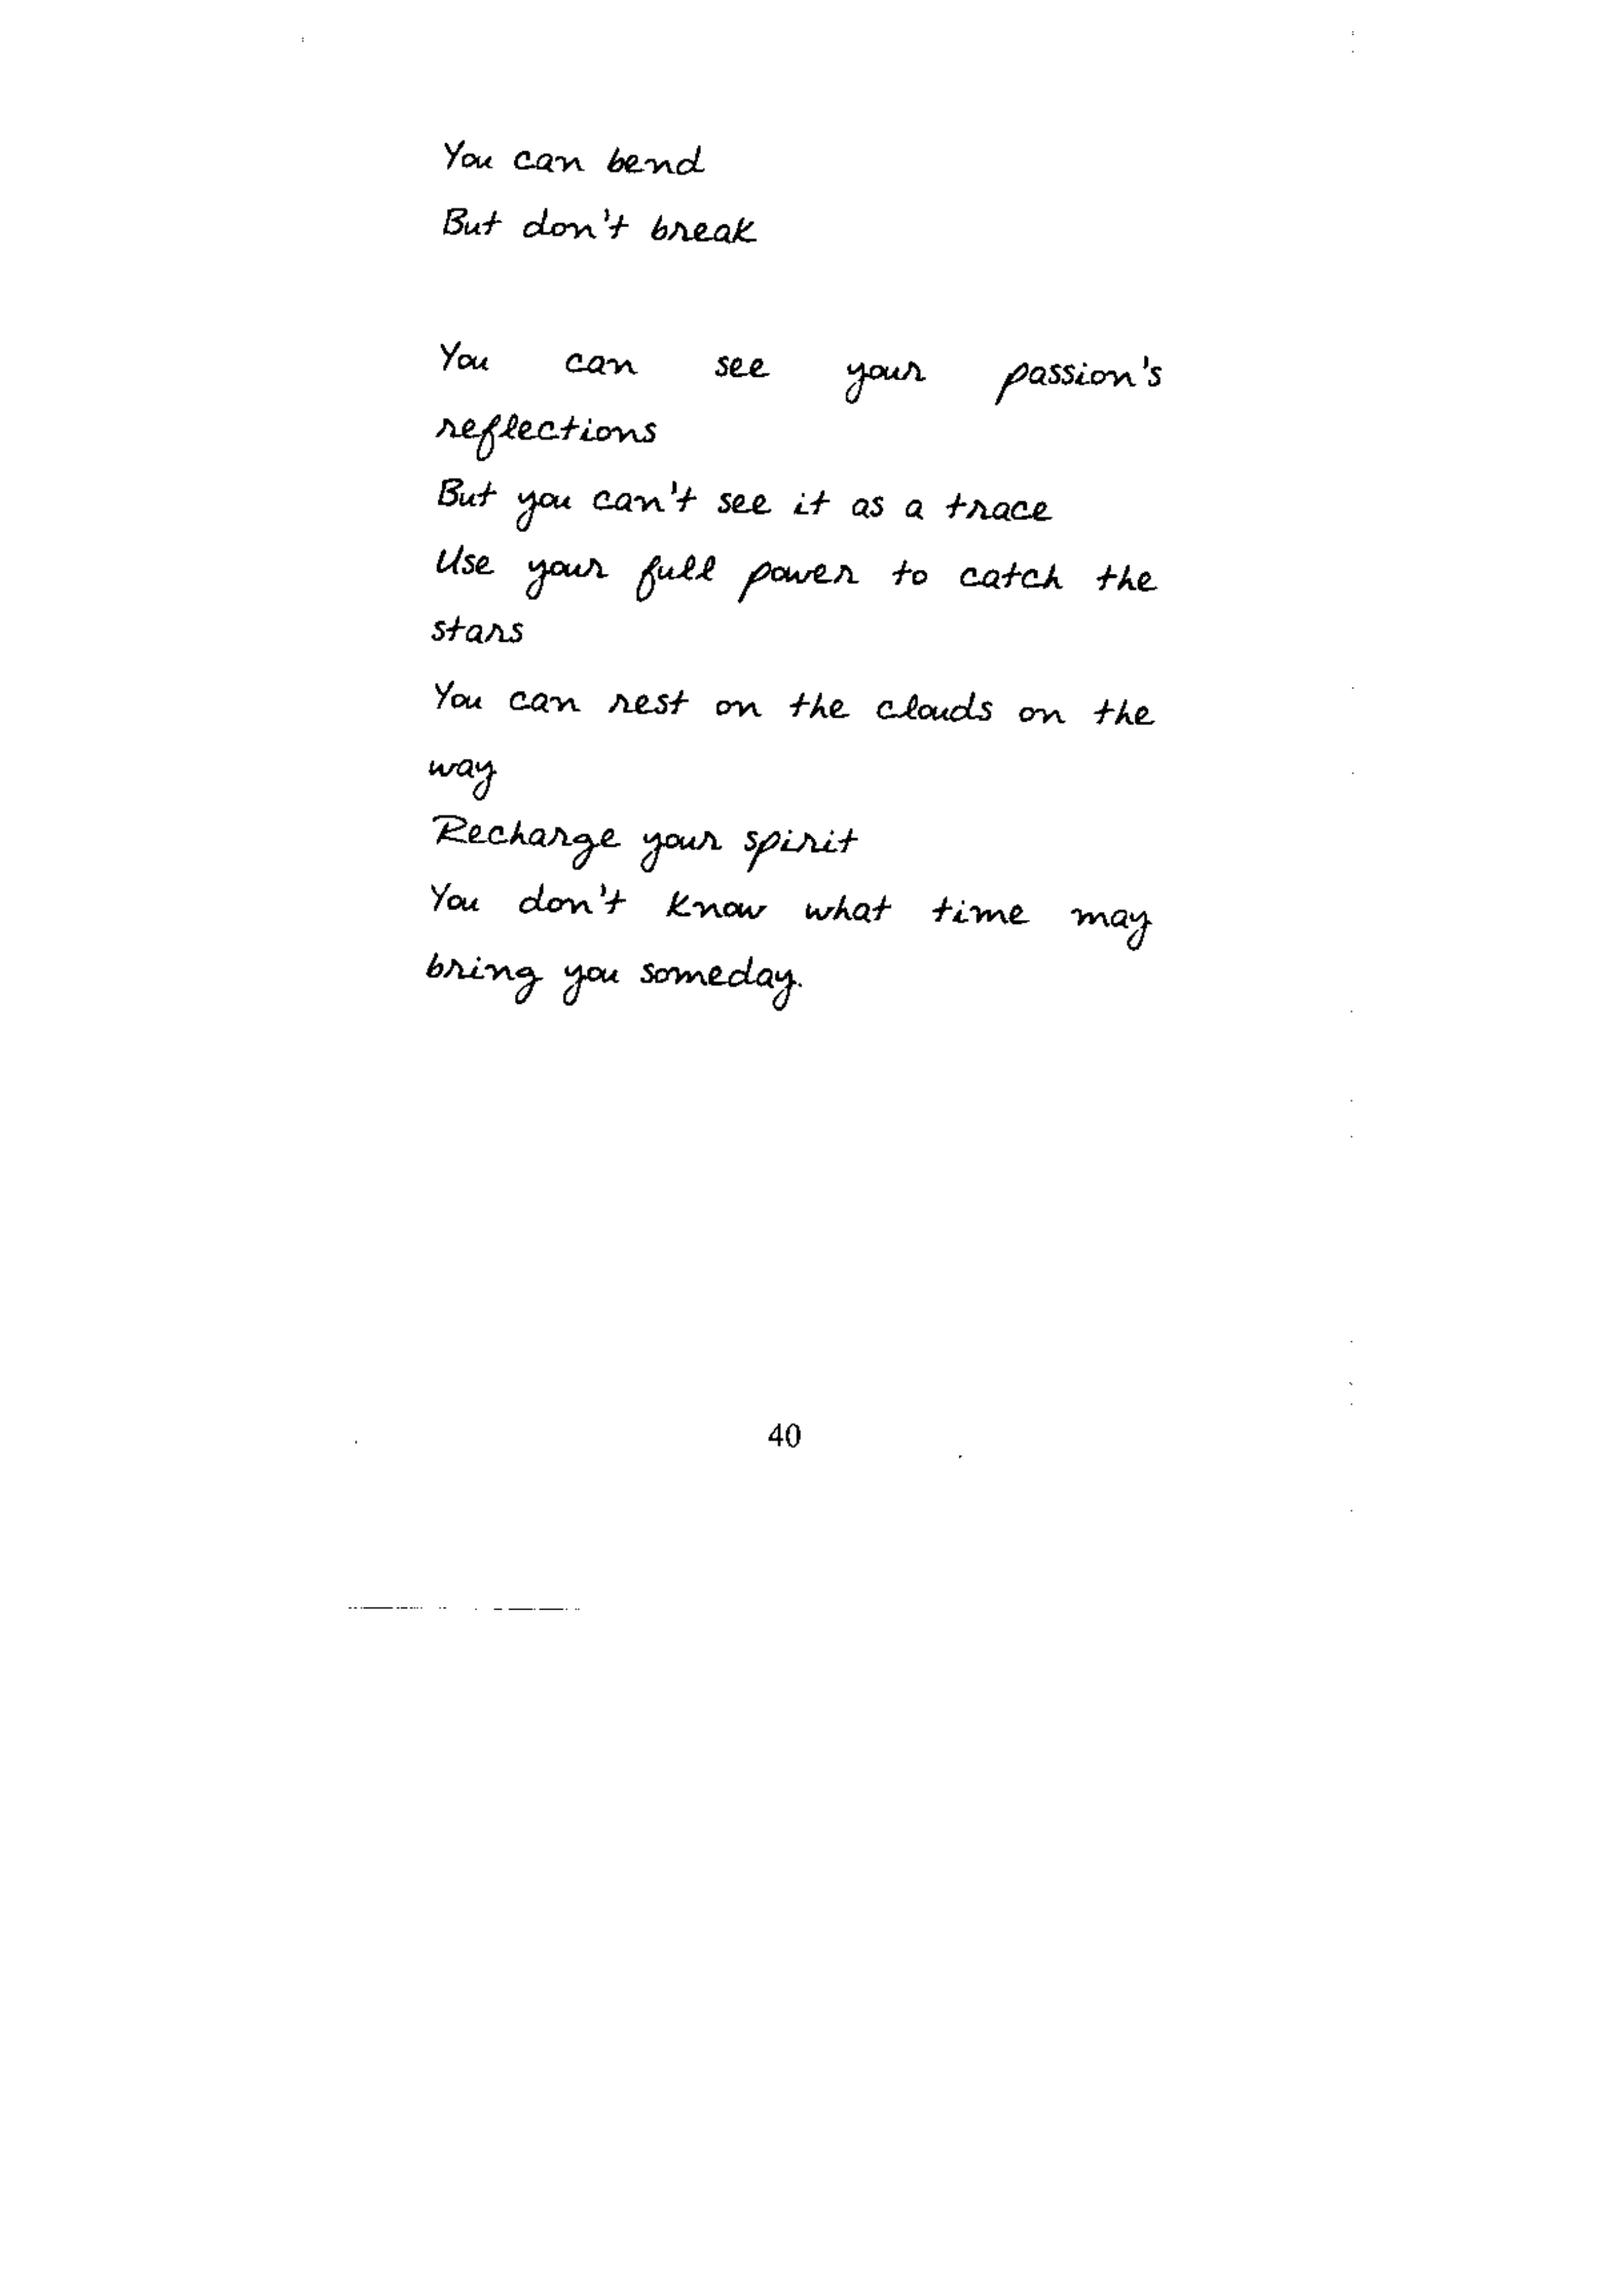 You can bend
But don't break
You can see your passion's
reflections
But you can't see it as a trace
Use your full power to catch the
stars
You can rest on the clouds on the
way
Recharge your spirit
You don't know what time may
bring you someday.
40